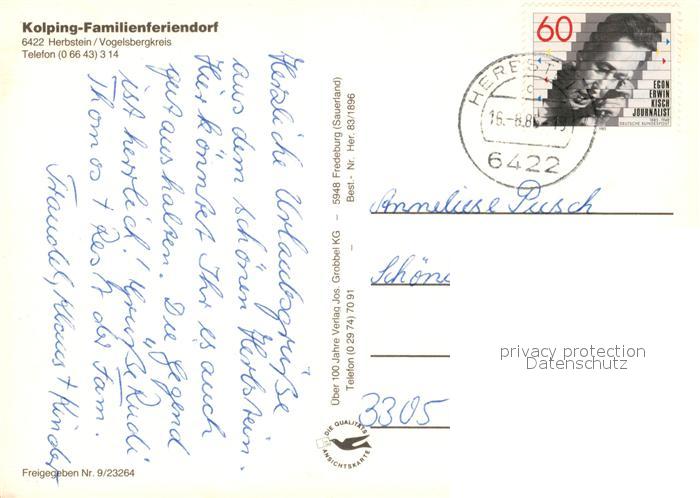 Kolping-Familienferiendorf
6422 Herbstein/Vogelsbergkreis
Telefon (0 66 43) 3 14
Herzliche Urlaubsgrüße
aus dem schönen Herbstein.
Hier könntet Ihr es auch
gut aushalten. Die Gegend
ist herrlich! Grüße Rudi
Thomas + Rest der Fam.
Traudel, Klaus + Kinder
Freigegeben Nr. 9/23264
Über 100 Jahre Verlag Jos. Grobbel KG – 5948 Fredeburg (Sauerland)
Telefon (0 29 74) 70 91 – Best.- Nr. Her. 83/1896
DIE QUALITÄTS
ANSICHTSKARTE
60
EGON
ERWIN
KISCH
JOURNALIST
1885-1948
DEUTSCHE BUNDESPOST
1985
HERBSTEIN
16.-8.8
6422
Anneliese Pusch
Schöne
3305
privacy protection
Datenschutz